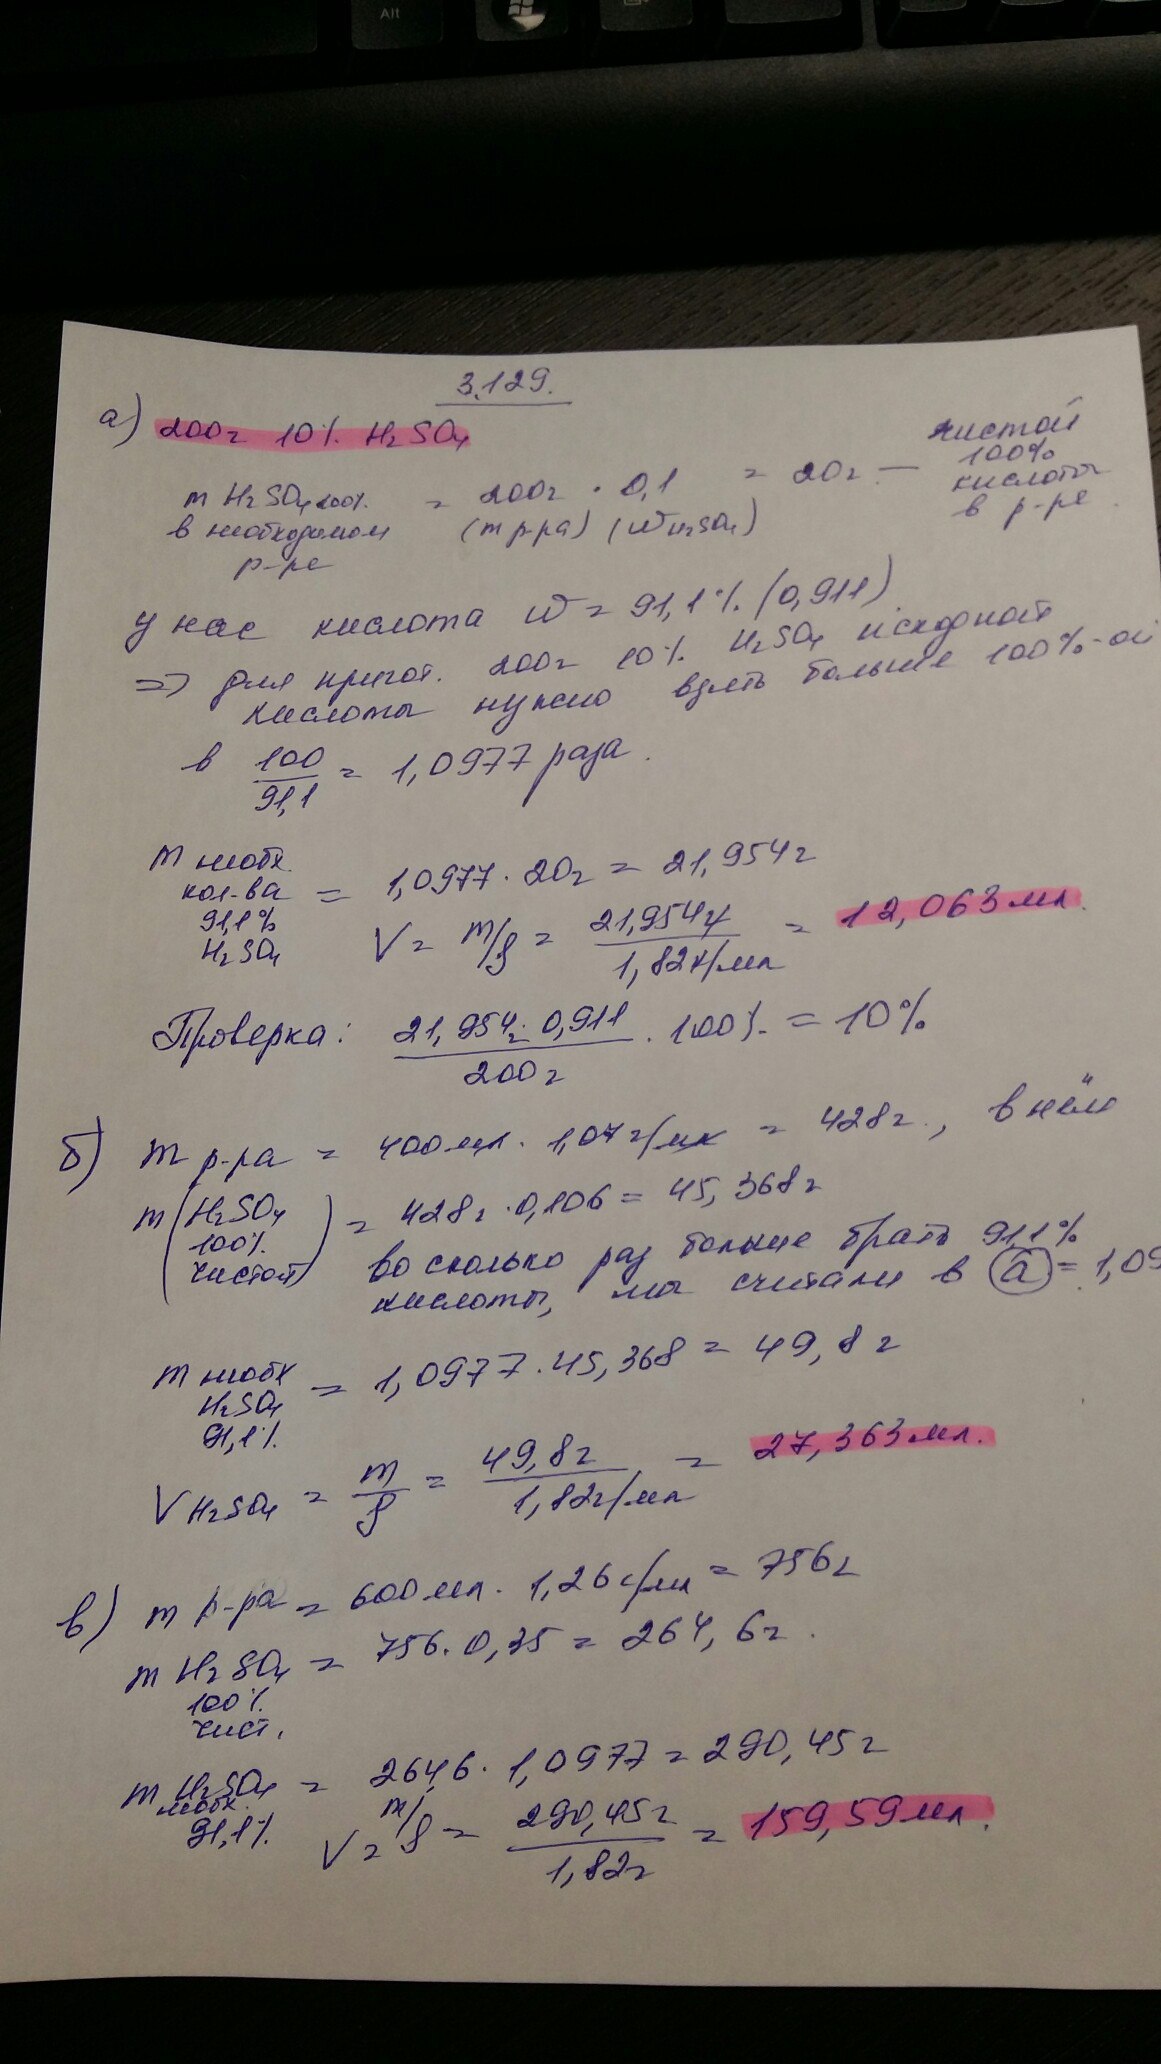 Alt
3.129.
а) 200г 10% H2SO4
m H2SO4 100% = 200г · 0,1 = 20г — чистой 100% кислоты в р-ре.
в необходимом р-ре (m р-ра) (w H2SO4)
у нас кислота w = 91,1% (0,911)
=> для пригот. 200г 10% H2SO4 исходной
кислоты нужно взять больше 100%-ой
в 100/91,1 = 1,0977 раза.
m необх. кол-ва 91,1% H2SO4 = 1,0977 · 20г = 21,954г
V = m/ρ = 21,954г/1,82г/мл = 12,063 мл.
Проверка: 21,954г · 0,911/200г · 100% = 10%
б) m р-ра = 400мл · 1,07г/мл = 428г, в нём
m (H2SO4 100% чистой) = 428г · 0,106 = 45,368г
во сколько раз больше брать 91,1%
кислоты, мы считали в (а) = 1,09
m необх H2SO4 91,1% = 1,0977 · 45,368 = 49,8г
V H2SO4 = m/ρ = 49,8г/1,82г/мл = 27,363 мл.
в) m р-ра = 600мл · 1,26г/мл = 756г
m H2SO4 100% чист. = 756 · 0,35 = 264,6г.
m H2SO4 необх. 91,1% = 264,6 · 1,0977 = 290,45г
V = m/ρ = 290,45г/1,82г = 159,59 мл.